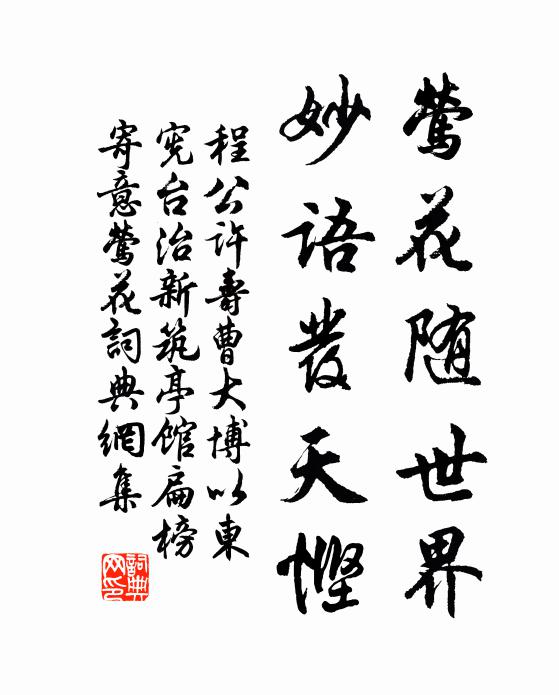 鶯花随世界
妙語發天慳
程公許壽曹大博以東
憲台治新筑亭館扁榜
寄意鶯花詞典網集
詞典網印